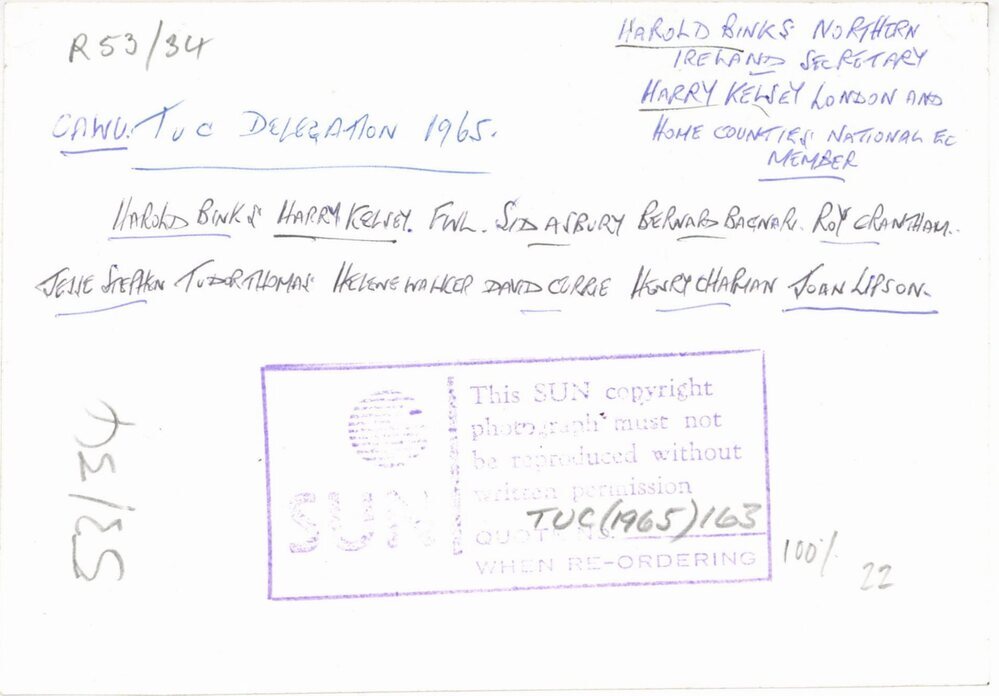 R53/34
HAROLD BINKS NORTHERN
IRELAND SECRETARY
HARRY KELSEY LONDON AND
HOME COUNTIES NATIONAL EC
MEMBER
CAWU. TUC DELEGATION 1965.
HAROLD BINKS HARRY KELSEY. FWL. SID ASBURY BERNARD BAGNARI. ROY GRANTHAM.
JESSE STEPHEN TUDOR THOMAS HELENE WALKER DAVID CURRIE HENRY CHAPMAN JOAN LIPSON.
53/34
SUN
This SUN copyright
photograph must not
be reproduced without
written permission
QUOTE NO. TUC(1965)163
WHEN RE-ORDERING
100%
22